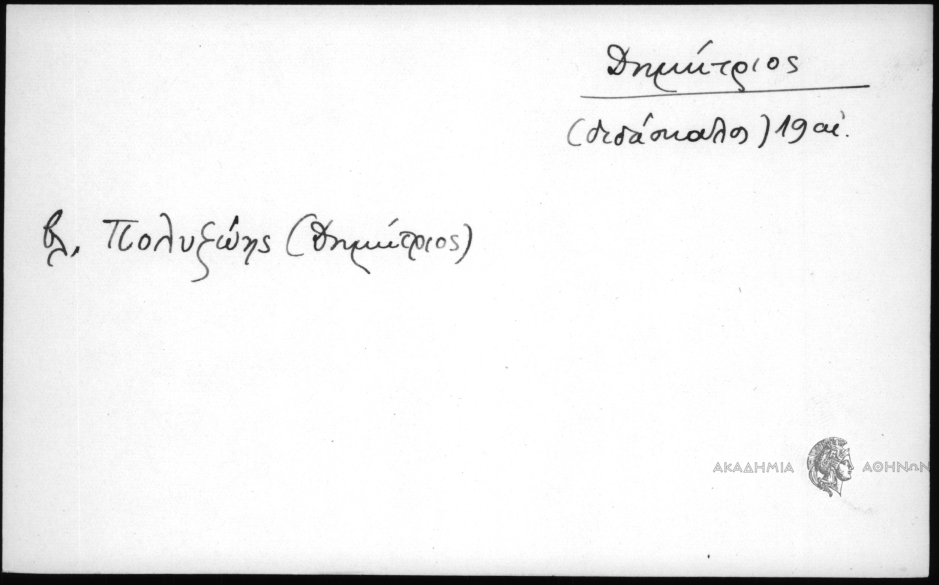 Δημήτριος
(διδάσκαλος) 19 αἰ.
βλ. Πολυξώης (Δημήτριος)
ΑΚΑΔΗΜΙΑ ΑΘΗΝΩΝ